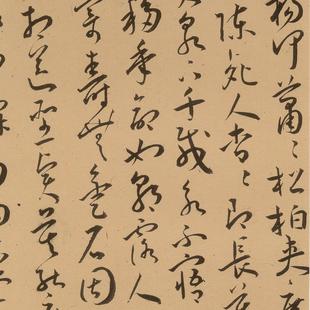 楊何蕭〻松柏夾
陳死人杳〻即長
泉下千載永不寤
移年命如朝露人
寄壽無金石固
相送聖賢莫能